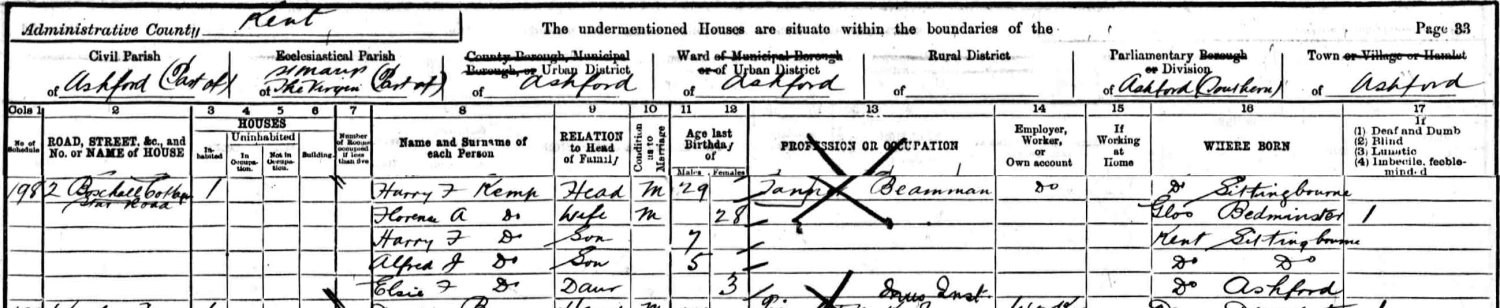 Administrative County Kent The undermentioned Houses are situate within the boundaries of the Page 33
Civil Parish of Ashford (Part of)
Ecclesiastical Parish of St Marys The Virgin (Part of)
County Borough, Municipal Borough, or Urban District of Ashford
Ward of Municipal Borough or of Urban District of Ashford
Rural District of
Parliamentary Borough or Division of Ashford (Southern)
Town or Village or Hamlet of Ashford
Cols 1 2 3 4 5 6 7 8 9 10 11 12 13 14 15 16 17
No. of Schedule
ROAD, STREET, &c., and No. or NAME of HOUSE
HOUSES
Inhabited
Uninhabited
In Occupation.
Not in Occupation.
Building.
Number of Rooms occupied if less than five
Name and Surname of each Person
RELATION to Head of Family
Condition as to Marriage
Age last Birthday of
Males Females
PROFESSION OR OCCUPATION
Employer, Worker, or Own account
If Working at Home
WHERE BORN
If
(1) Deaf and Dumb
(2) Blind
(3) Lunatic
(4) Imbecile, feeble-minded
198 2 1 Harry F Kemp Head M 29 Beamman Do Do Sittingbourne
Star Road Florence A Do Wife M 28 Glos Bedminster 1
Harry F Do Son 7 Kent Sittingbourne
Alfred J Do Son 5 Do Do
Elsie F Do Daur 3 Do Ashford